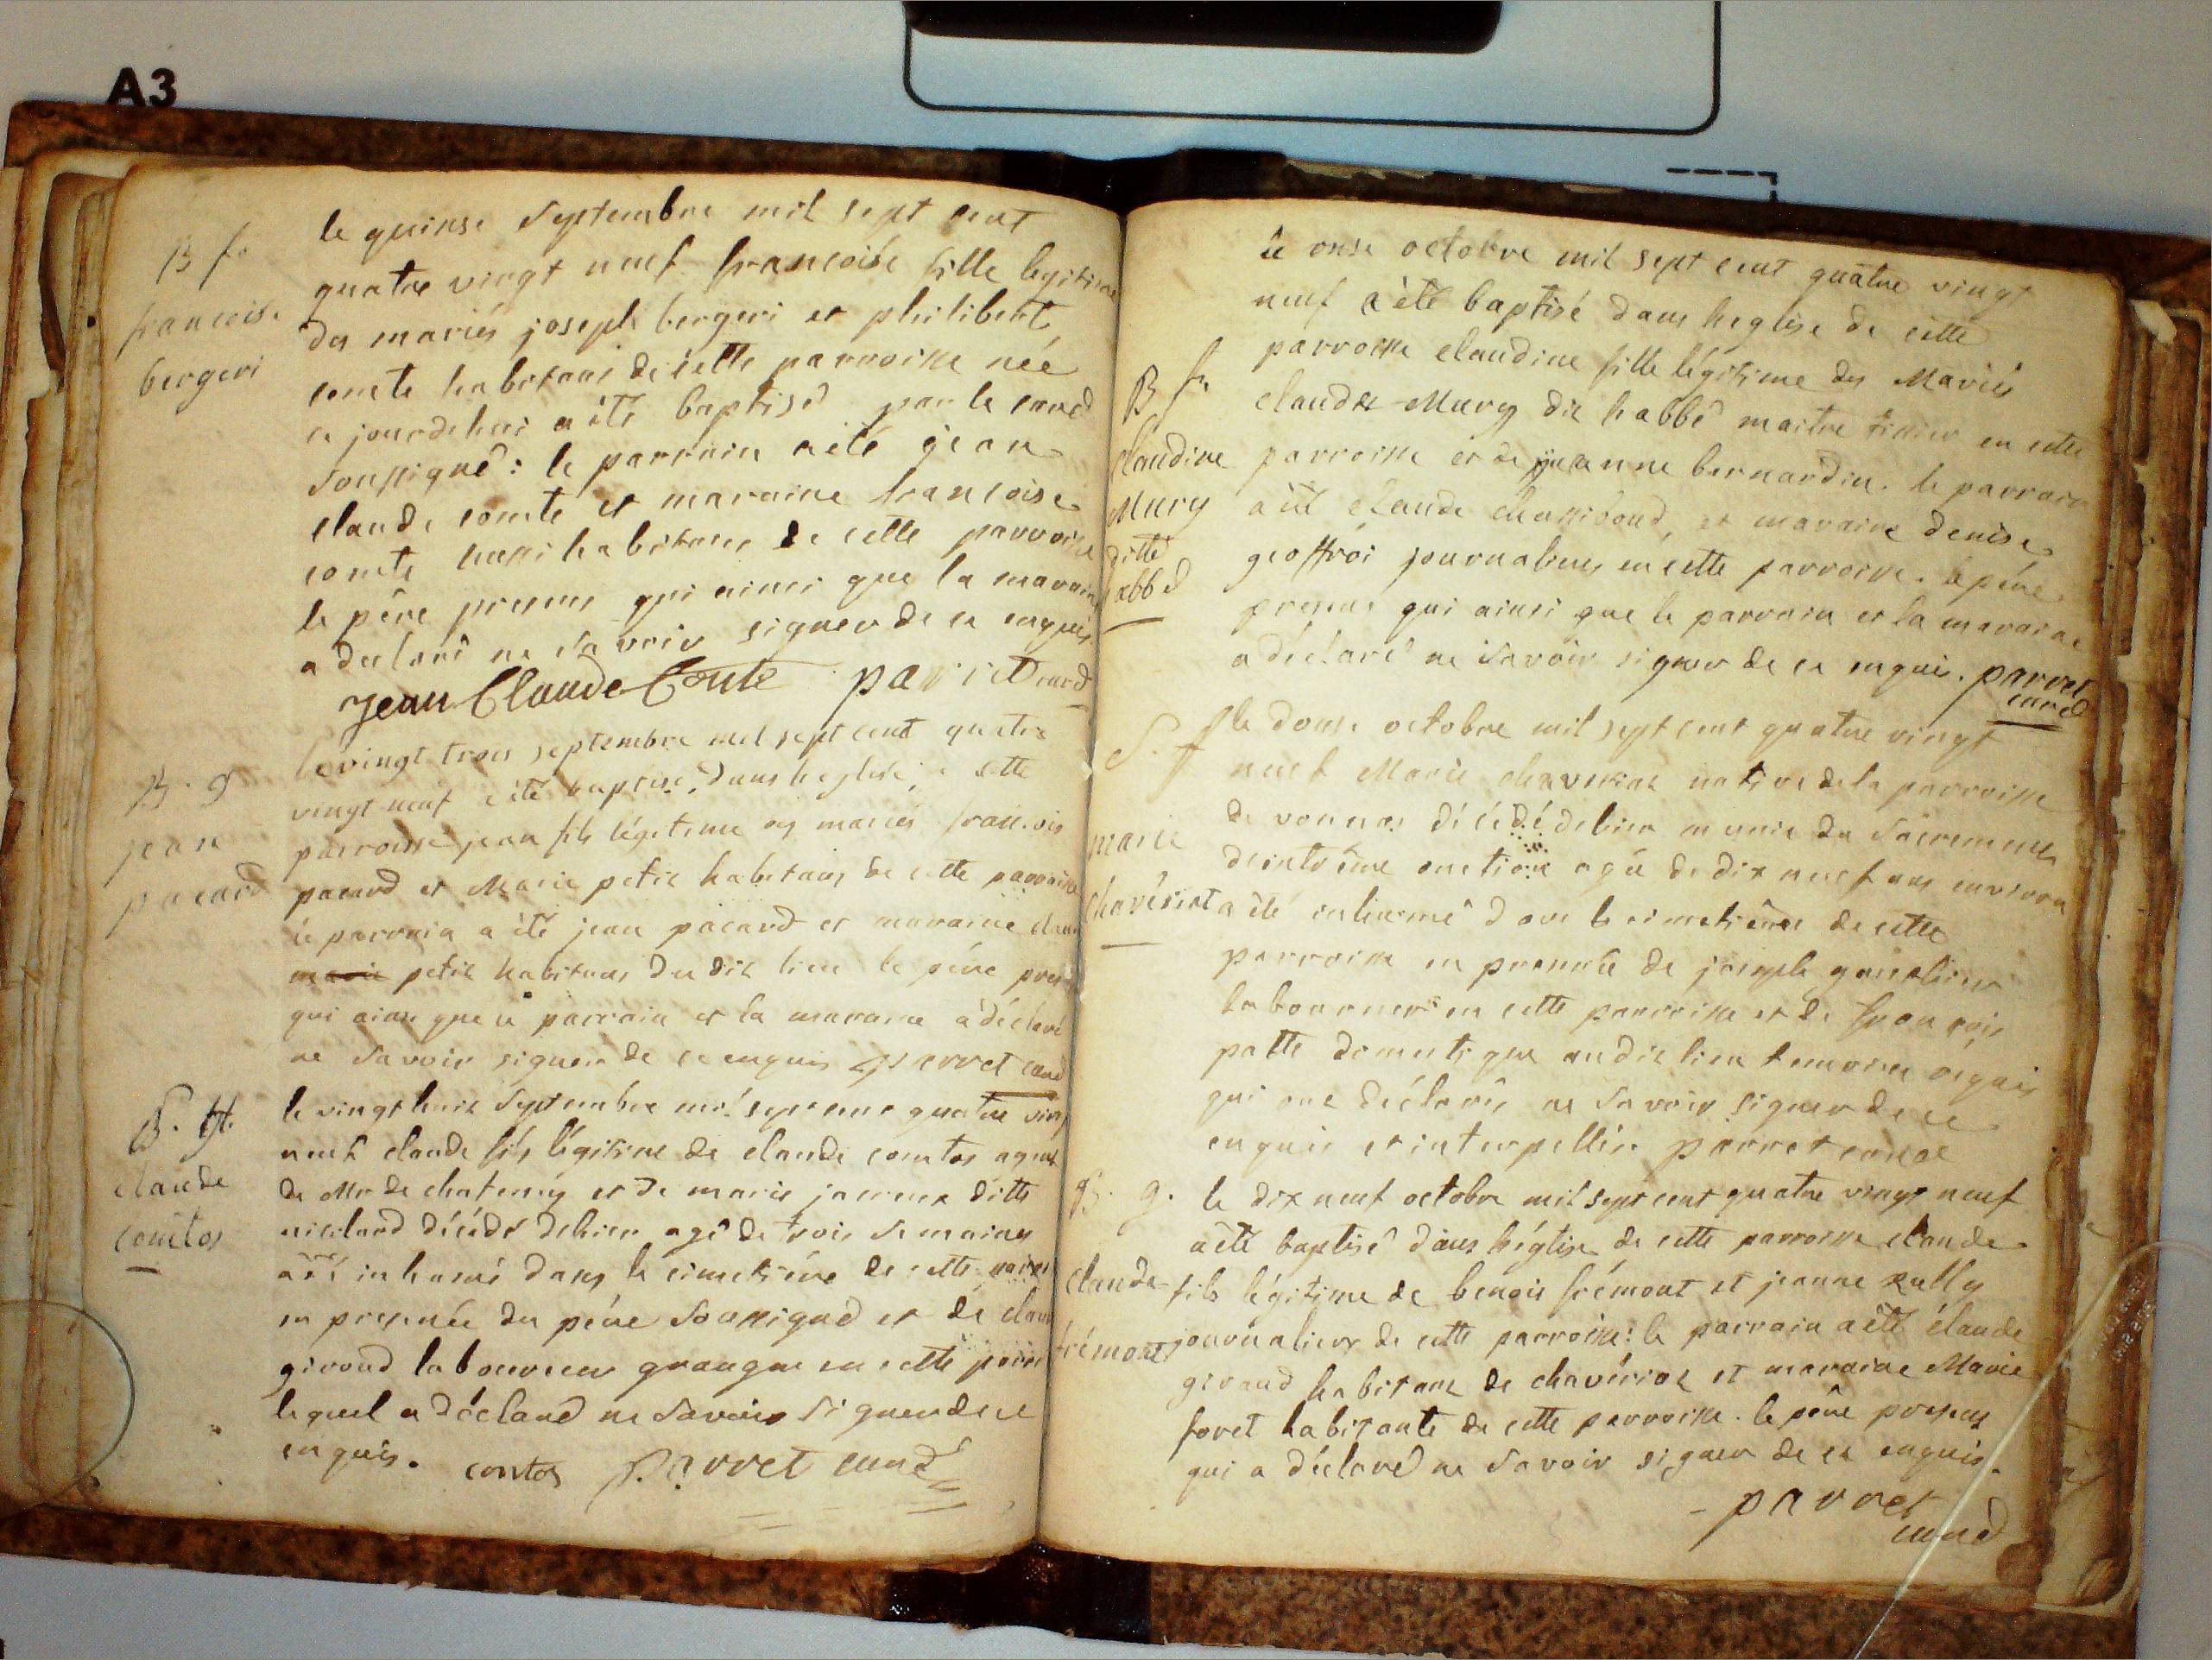 A3
B f.
francoise
bergeri
le quinse Septembre mil sept cent
quatre vingt neuf francoise fille legitime
des mariés joseph bergeri et philibert
comte habitans de cette parroisse née
ce jourdehui a été baptisé par le curé
soussigné : le parrain a été jean
claude comte et maraine francoise
comte aussi habitans de cette parroisse
le pére present qui ainsi que la maraine
a declaré ne savoir signer de ce enquis
jean Claude Conte parret curé
B. g
jean
pacard
le vingt trois septembre mil sept cent quatre
vingt neuf a été baptisé dans leglise de cette
parroisse jean fils légitime des mariés francois
pacard et Marie petit habitans de cette parroisse
le parrain a été jean pacard et maraine
petit habitans du dit lieu le pére
qui ainsi que le parrain et la maraine a déclaré
ne savoir signer de ce enquis parret curé
claude
comtos
le vingt huit Septembre mil sept cent quatre vingt
neuf claude fils légitime de claude comtos agent
de Mr de chatenay et de marie ditte
décédé dehier agé de trois semaines
a été inhumé dans le cimetiére de cette
en presence du pére soussigné et de claude
giroud laboureur granger en cette
lequel a déclaré ne savoir signer de ce
enquis. contos parret curé
le onse octobre mil sept cent quatre vingt
neuf a été baptisé dans leglise de cette
parroisse claudine fille légitime des Mariés
B f.
claudine
Mury
ditte
labbé
claude Mury dit labbé maitre en cette
parroisse et de jeanne bernardin. le parrain
a été claude et maraine denise
geoffroi journaliers en cette parroisse. le pére
present qui ainsi que le parrain et la maraine
a déclaré ne savoir signer de ce enquis. parret
curé
S. f
marie
chavériat
le douse octobre mil sept cent quatre vingt
neuf Marie chaveriat native de la parroisse
de vonnas décédé dehier munie du Sacrement
dextrême onction agée de dix neuf ans environ
a été inhumé dans le cimetiére de cette
parroisse en presence de joseph
laboureur en cette parroisse et de francois
patte domestique audit lieu temoins
qui ont déclaré ne savoir signer de ce
enquis et interpellés. parret curé
B. g.
claude
frémont
le dix neuf octobre mil sept cent quatre vingt neuf
a été baptisé dans léglise de cette parroisse claude
fils légitime de benois frémont et jeanne rully
journaliers de cette parroisse : le parrain a été claude
giraud habitant de chavériat et maraine Marie
foret habitante de cette parroisse. le pére present
qui a déclaré ne savoir signer de ce enquis.
parret
curé